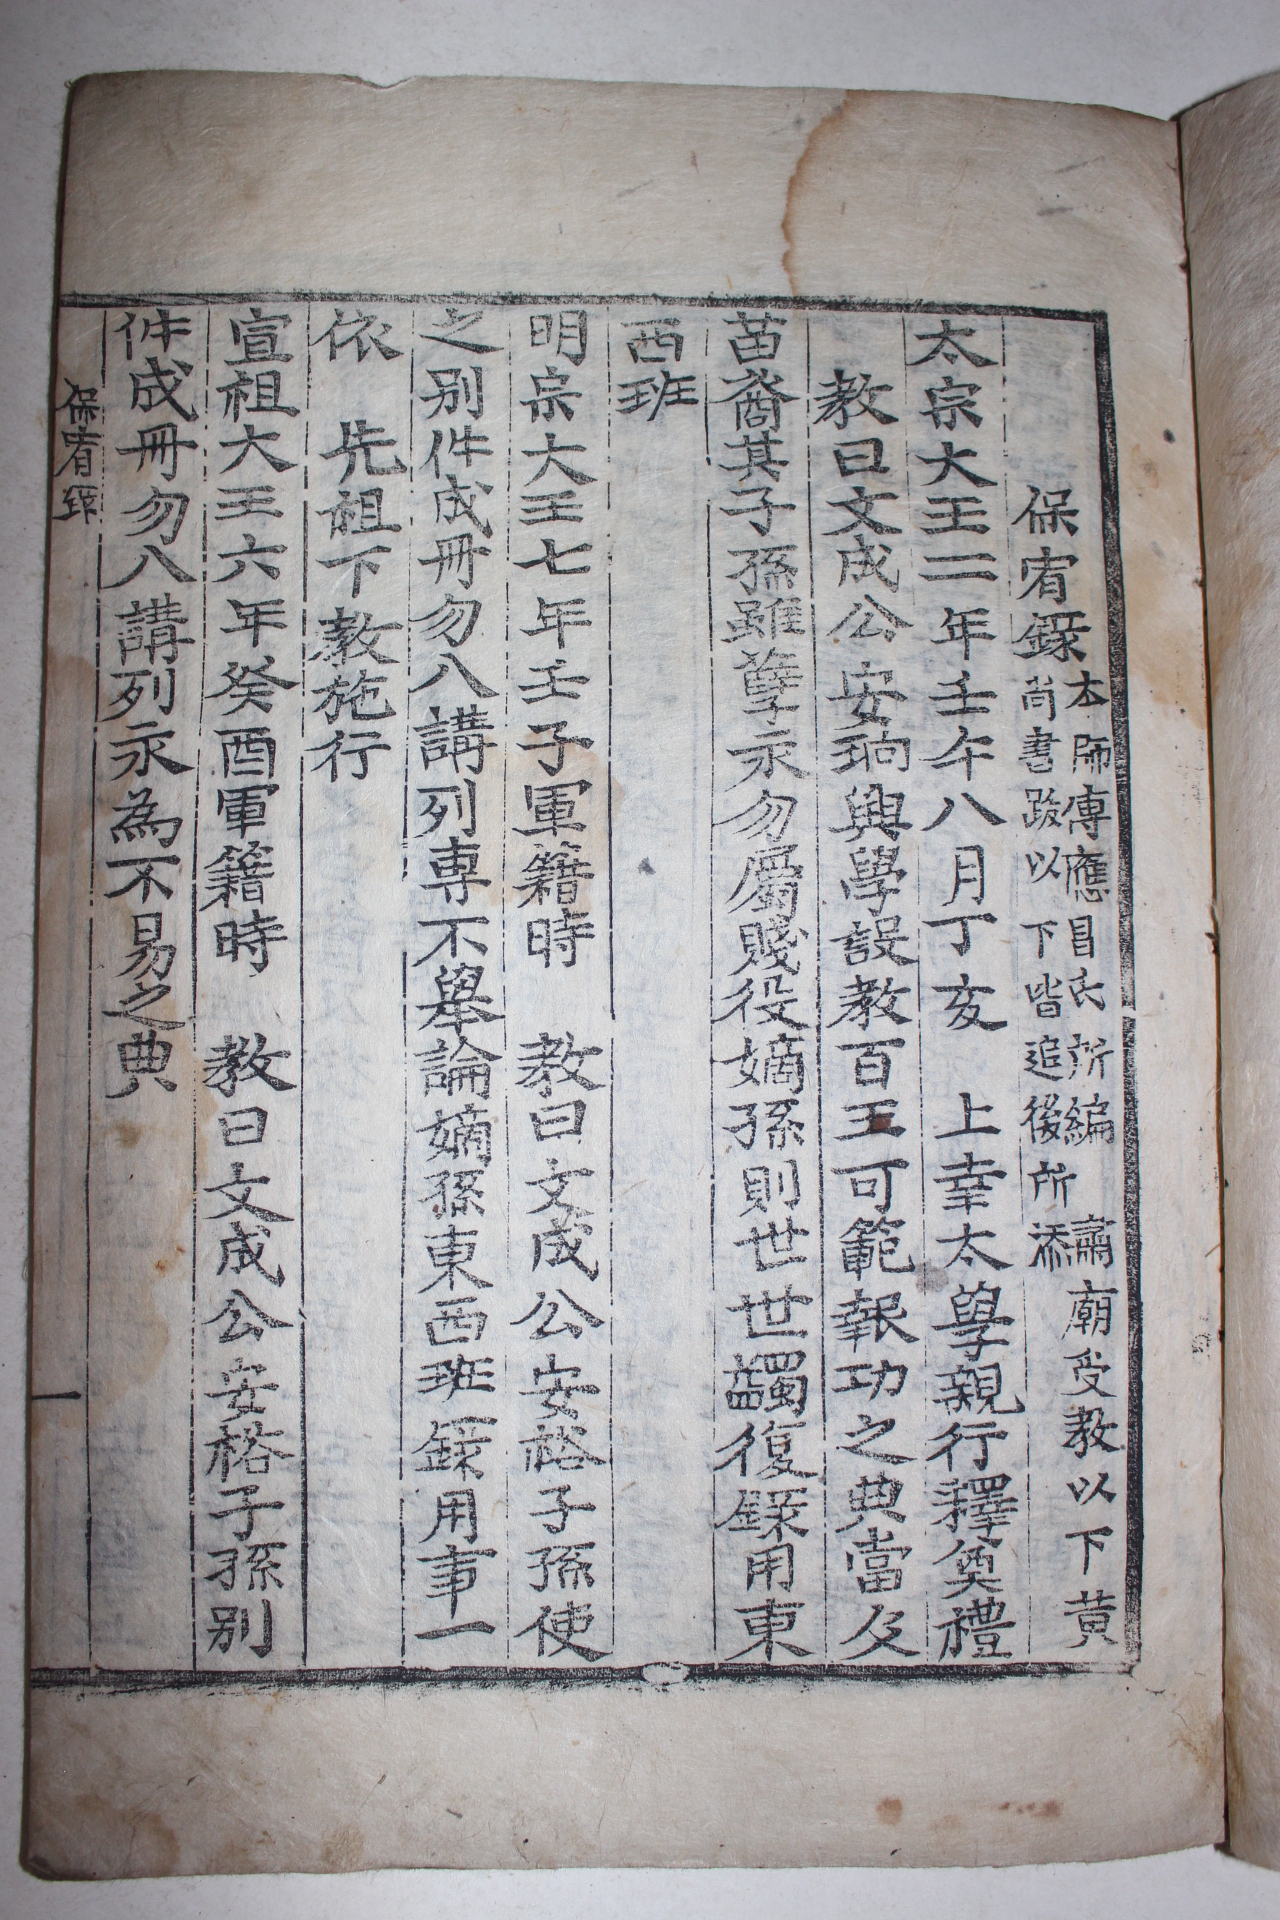 保宥錄
本師傅應昌氏所編 肅廟受教以下黃
尚書跋以下皆追後所添
太宗大王二年壬午八月丁亥 上幸太學親行釋奠禮
教曰文成公安珦興學設教百王可範報功之典當及
苗裔其子孫雖孽永勿屬賤役嫡孫則世世蠲復錄用東
西班
明宗大王七年壬子軍籍時 教曰文成公安裕子孫使
之别件成冊勿入講列專不舉論嫡孫東西班錄用事一
依 先祖下教施行
宣祖大王六年癸酉軍籍時 教曰文成公安裕子孫别
件成冊勿入講列永為不易之典
保宥錄
一